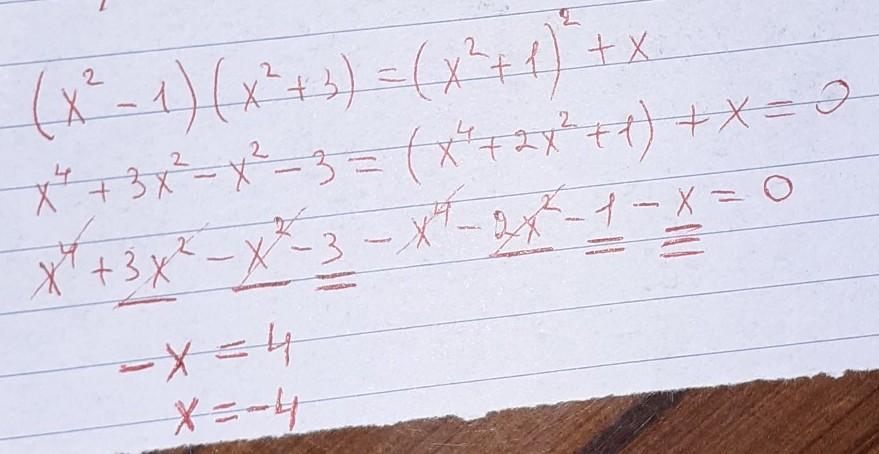 (x² - 1)(x² + 3) = (x² + 1)² + x
x⁴ + 3x² - x² - 3 = (x⁴ + 2x² + 1) + x = 0
x⁴ + 3x² - x² - 3 - x⁴ - 2x² - 1 - x = 0
-x = 4
x = -4